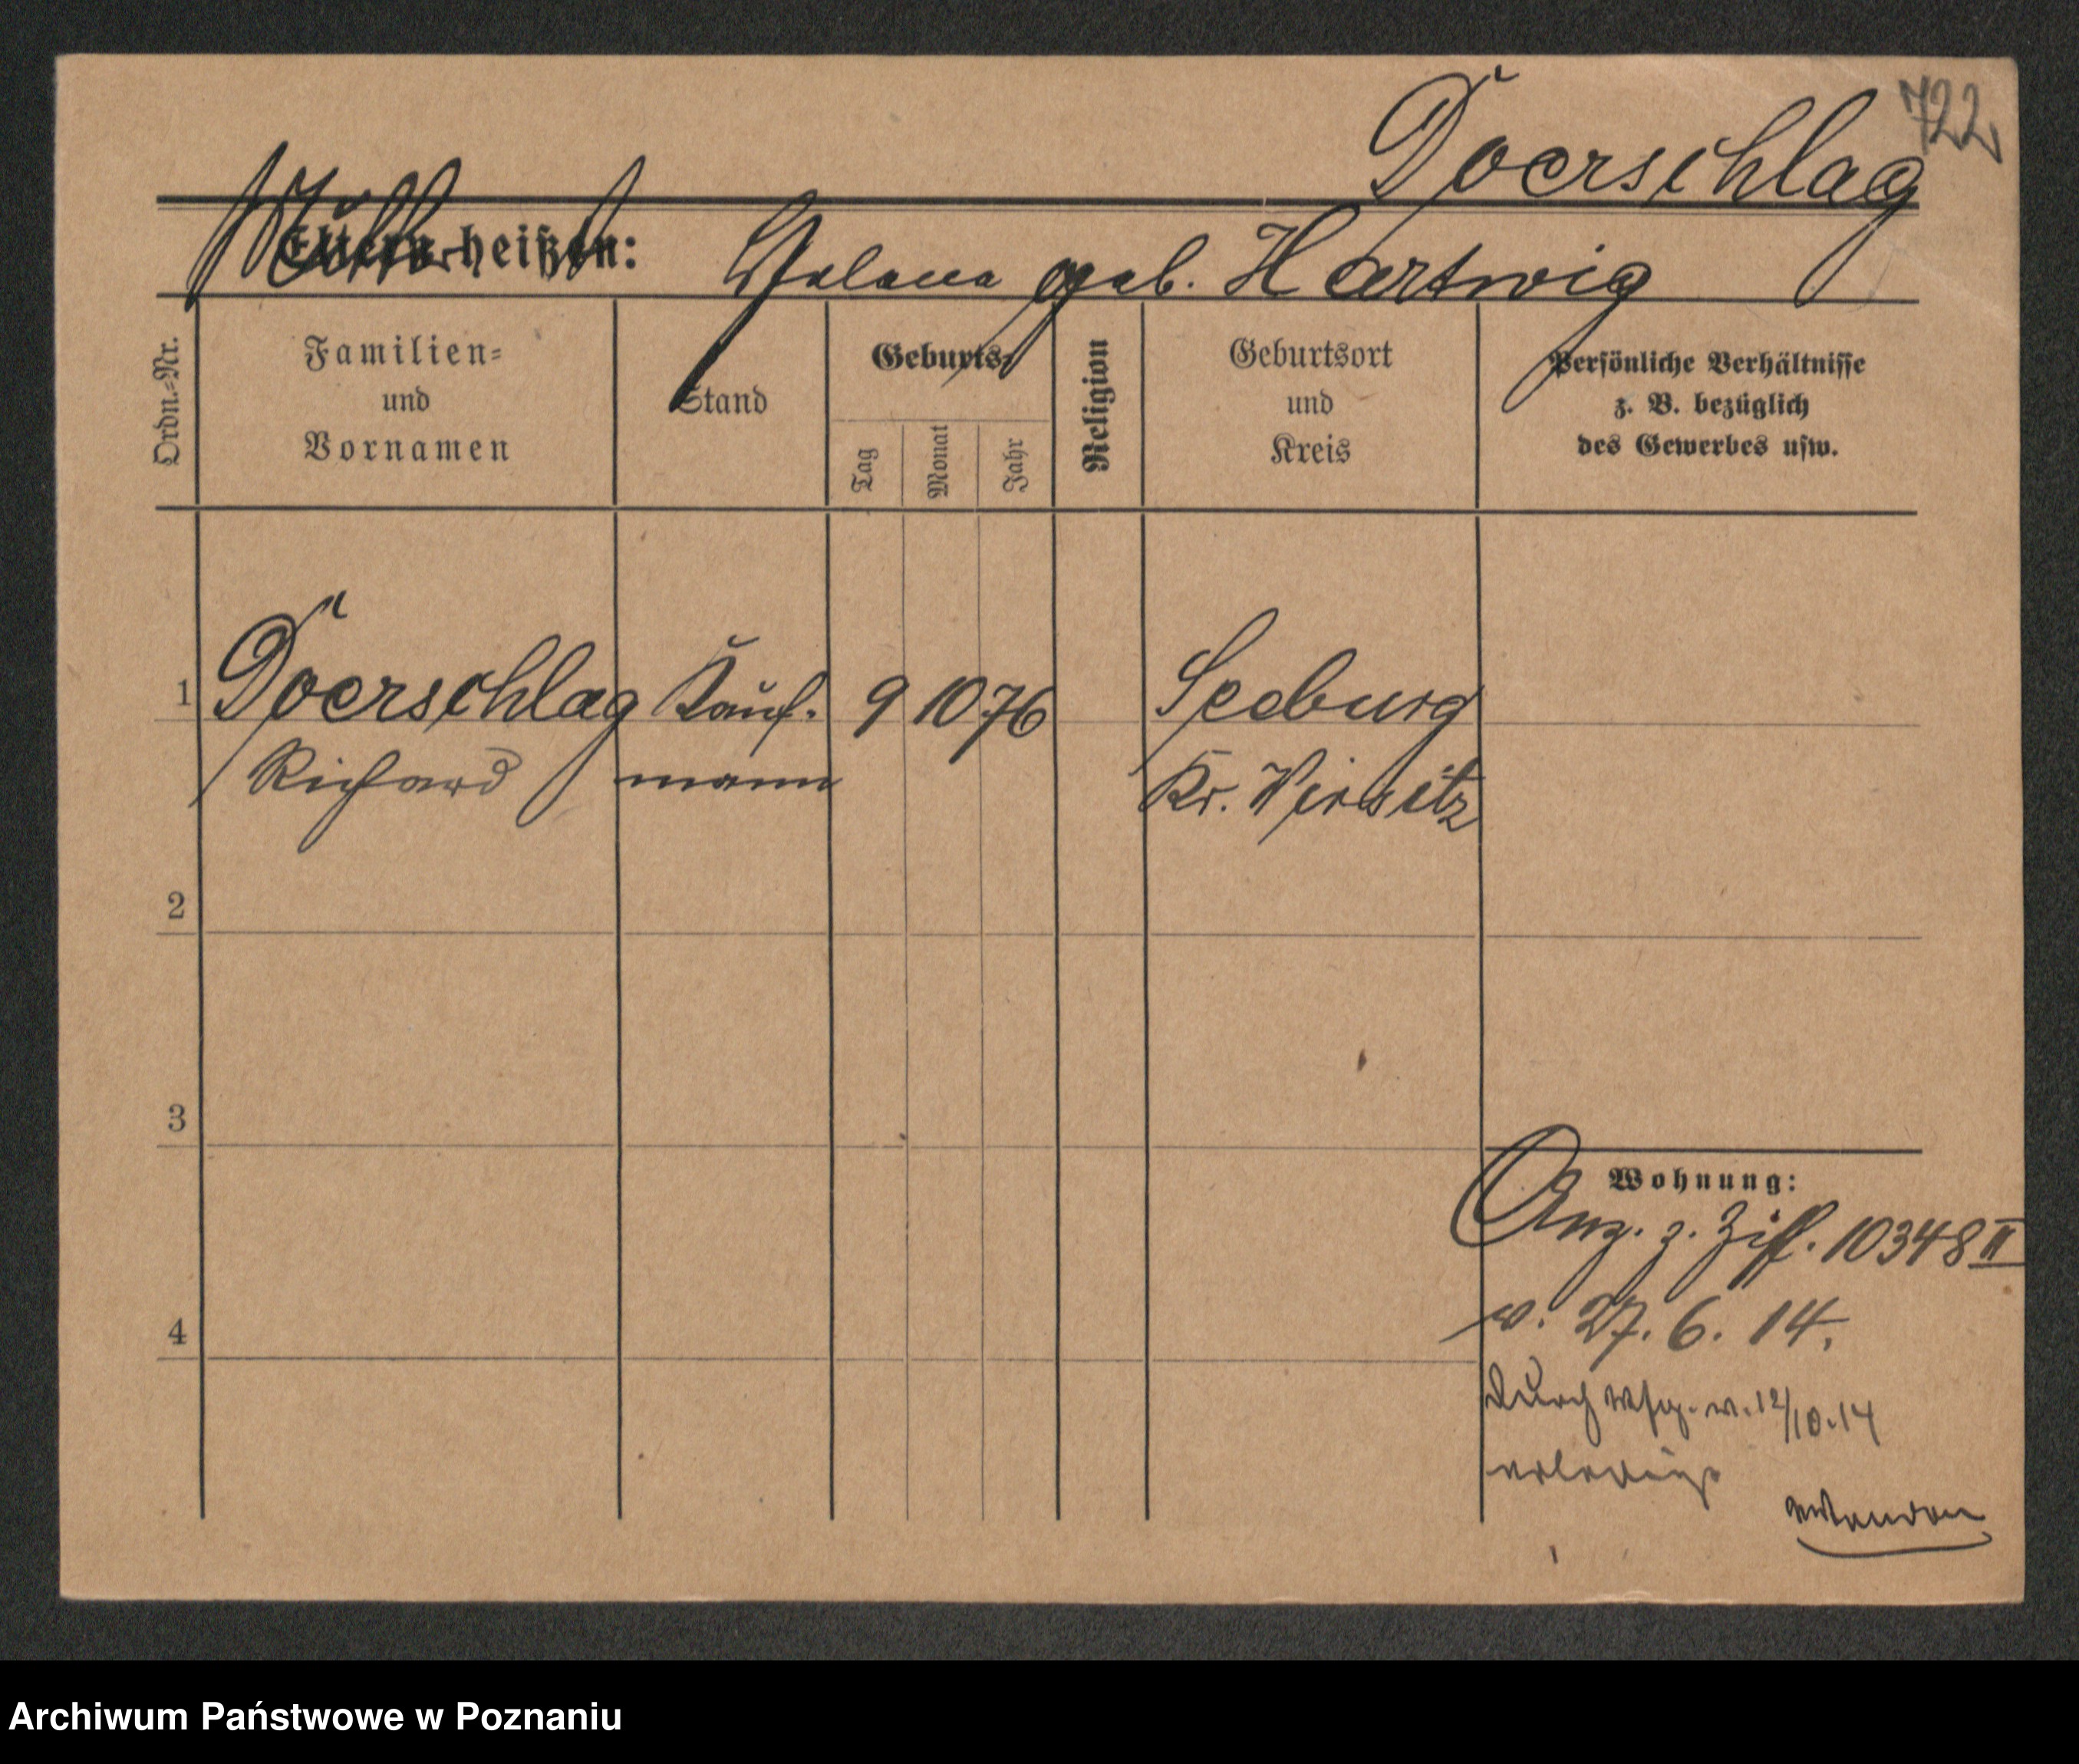 722
Doerschlag
Eltern heißen: Helene geb. Hartwig
Ordn.=Nr.
Familien=
und
Vornamen
Stand
Geburts=
Tag
Monat
Jahr
Religion
Geburtsort
und
Kreis
Persönliche Verhältnisse
z. B. bezüglich
des Gewerbes usw.
1 Doerschlag Kauf- 9 10 76 Seeburg
Richard mann Kr. Wirsitz
2
3
4
Wohnung:
Anz. z. Ziff. 10348 II
v. 27. 6. 14.
durch v. 12/10.14
erledigt
Archiwum Państwowe w Poznaniu